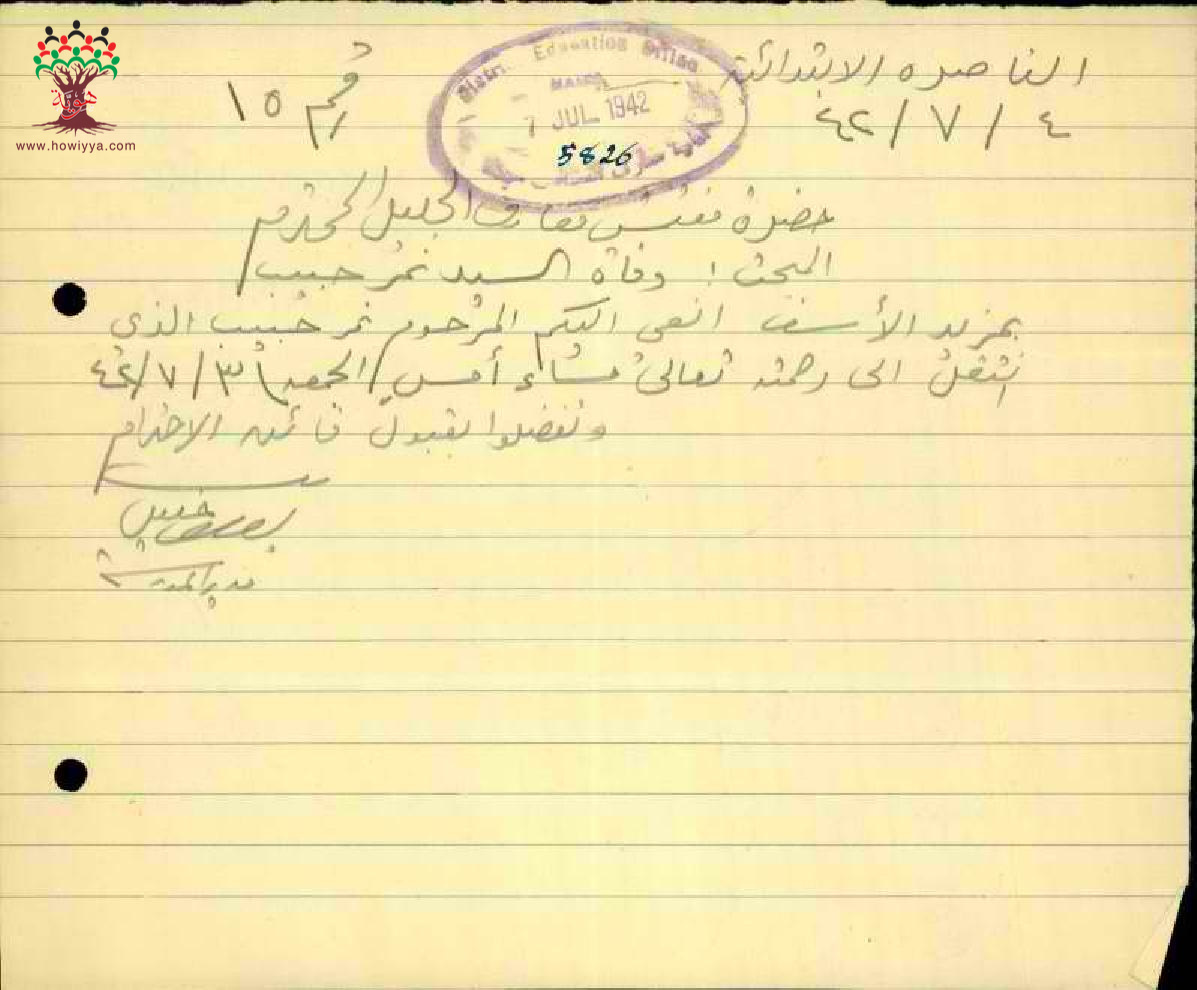 هوية
www.howiyya.com
الناصره الابتدائية
رقم ١٥
٤ / ٧ / ٤٢
District Education Office
HAIFA
7 JUL 1942
5826
حضرة مفتش معارف الجليل المحترم
المبحث : وفاة السيد نمر حبيب
بمزيد الأسف انعى اليكم المرحوم نمر حبيب الذي
انتقل الى رحمته تعالى مساء أمس (الجمعة) ٣ / ٧ / ٤٢
وتفضلوا بقبول فائق الاحترام
مدير المدرسة